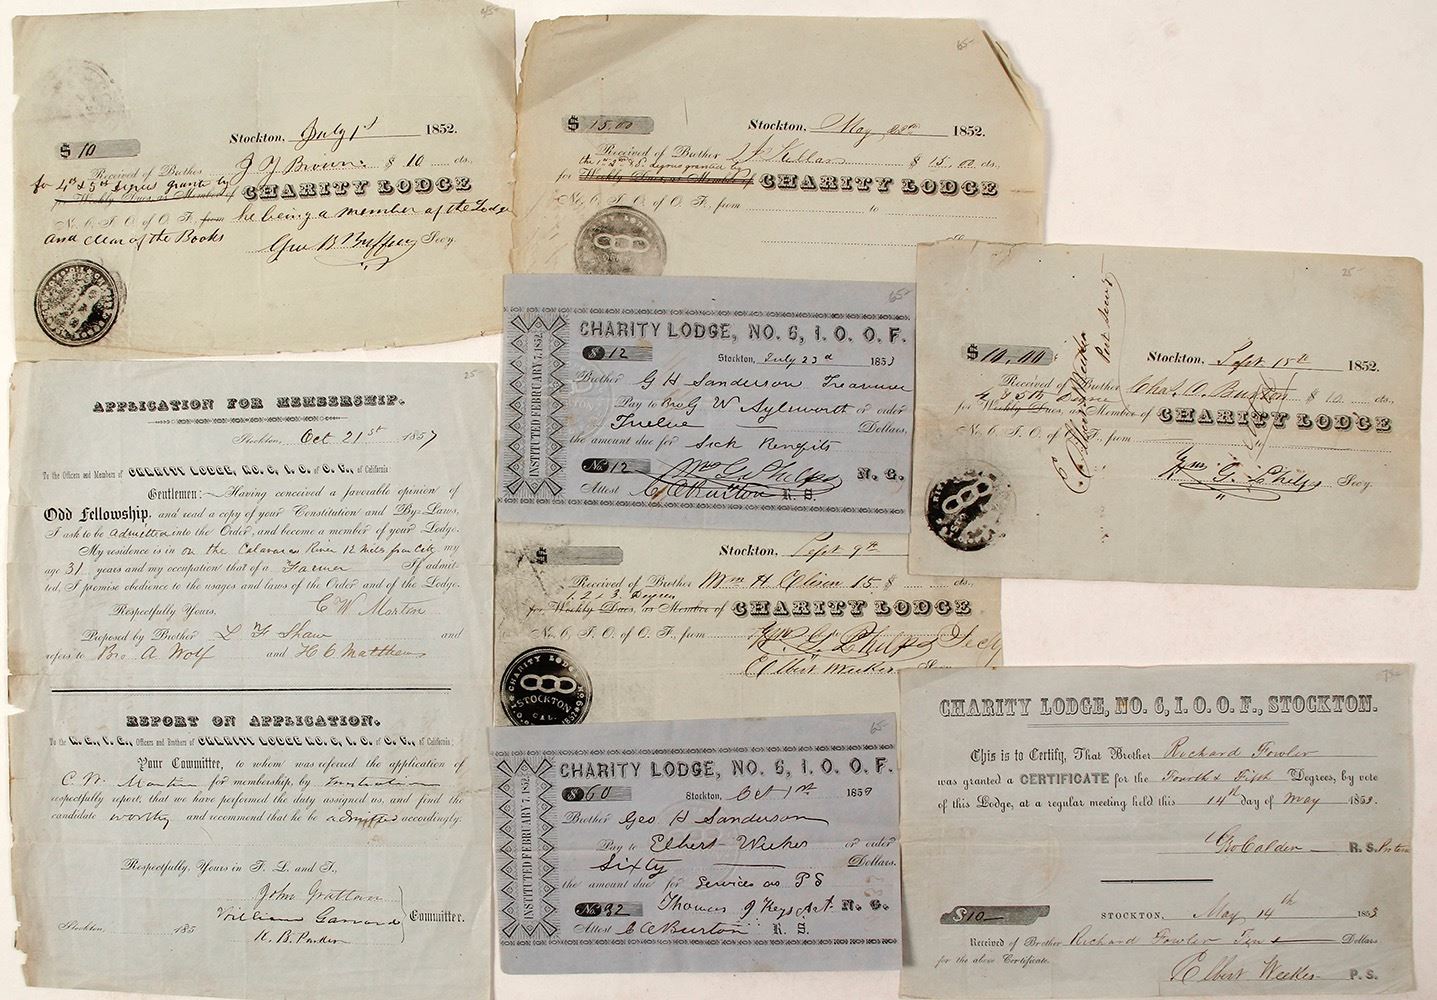 45-
Stockton, July 1st 1852.
$ 10
Received of Brother J J Brown $ 10 cts.,
for 4th & 5th degrees grante by
for Weekly Dues, as Member of CHARITY LODGE
No. 6, I. O. of O. F., from he being a member of the Lodge
and clear of the Books Geo B Secy.
65-
$ 15.00 Stockton, May 1852.
Received of Brother $ 15.00 cts.,
the 1st 2nd & 3d degrees granted by
for Weekly Dues, as Member of CHARITY LODGE
No. 6, I. O. of O. F., from to
65-
INSTITUTED FEBRUARY 7, 1852.
CHARITY LODGE, NO. 6, I. O. O. F.
$ 12 Stockton, July 23d 1853
Brother G H Sanderson Treasurer
Pay to Bro G W Aylsworth or order
Twelve Dollars,
the amount due for Sick Benefits
No. 12 Wm G Phelps N. G.
Attest C A Burton R. S.
25-
$ 10,00 Stockton, Sept 15th 1852.
Received of Brother Chas. A. Burton $ 10 cts.,
4 & 5th Degree
for Weekly Dues, as Member of CHARITY LODGE
No. 6, I. O. of O. F., from to
Wm G. Phelps Secy.
Elbert Weeker
25-
APPLICATION FOR MEMBERSHIP.
Stockton, Oct 21st 1857
To the Officers and Members of CHARITY LODGE, NO. 6, I. O. of O. F., of California:
Gentlemen:—Having conceived a favorable opinion of
Odd Fellowship, and read a copy of your Constitution and By-Laws,
I ask to be admitted into the Order, and become a member of your Lodge.
My residence is in on the Calavaras River 12 miles from City, my
age 31 years and my occupation that of a Farmer If admit-
ted, I promise obedience to the usages and laws of the Order and of the Lodge.
Respectfully Yours, C W Marten
Proposed by Brother L F Shaw and
refers to Bro A Wolf and H C Matthews
REPORT ON APPLICATION.
To the N. G., V. G., Officers and Brothers of CHARITY LODGE NO. 6, I. O. of O. F., of California:
Your Committee, to whom was referred the application of
C. W. Marten for membership, by Initiation
respectfully report, that we have performed the duty assigned us, and find the
candidate worthy and recommend that he be admitted accordingly.
Respectfully, Yours in F. L. and T.,
John Grattan
William Garrard Committee.
Stockton, 185
$ Stockton, Sept 9th
Received of Brother Wm H 15 $ cts.,
1. 2 & 3. Degrees
for Weekly Dues, as Member of CHARITY LODGE
No. 6, I. O. of O. F., from Wm G. Phelps Secy
Elbert Weeker Secy
CHARITY LODGE No. 6
STOCKTON
CAL.
65-
INSTITUTED FEBRUARY 7, 1852.
CHARITY LODGE, NO. 6, I. O. O. F.
$ 60 Stockton, Oct 1st 1853
Brother Geo H Sanderson
Pay to Elbert Weeker or order
Sixty Dollars.
the amount due for Services as PS
No. 32 Thomas J Keys N. G.
Attest C A Burton R. S.
75-
CHARITY LODGE, NO. 6, I. O. O. F., STOCKTON.
This is to Certify, That Brother Richard Fowler
was granted a CERTIFICATE for the Fourth & Fifth Degrees, by vote
of this Lodge, at a regular meeting held this 14th day of May 1853.
Geo Calder R. S. Pro tem
$10 STOCKTON, May 14th 1853
Received of Brother Richard Fowler Ten Dollars
for the above Certificate.
Elbert Weeker P. S.